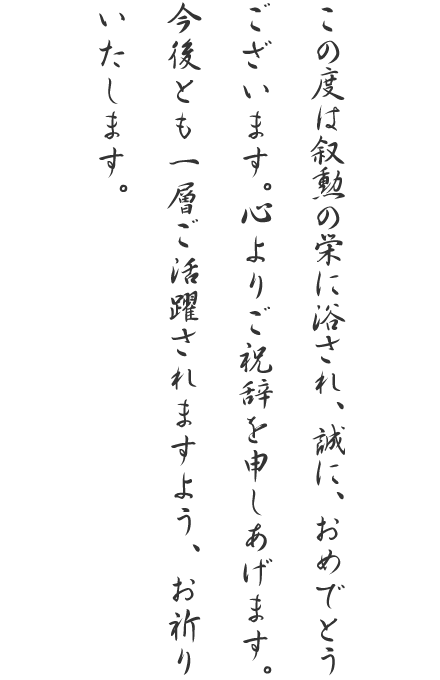 この度は叙勲の栄に浴され、誠に、おめでとう
ございます。心よりご祝辞を申しあげます。
今後とも一層ご活躍されますよう、お祈り
いたします。